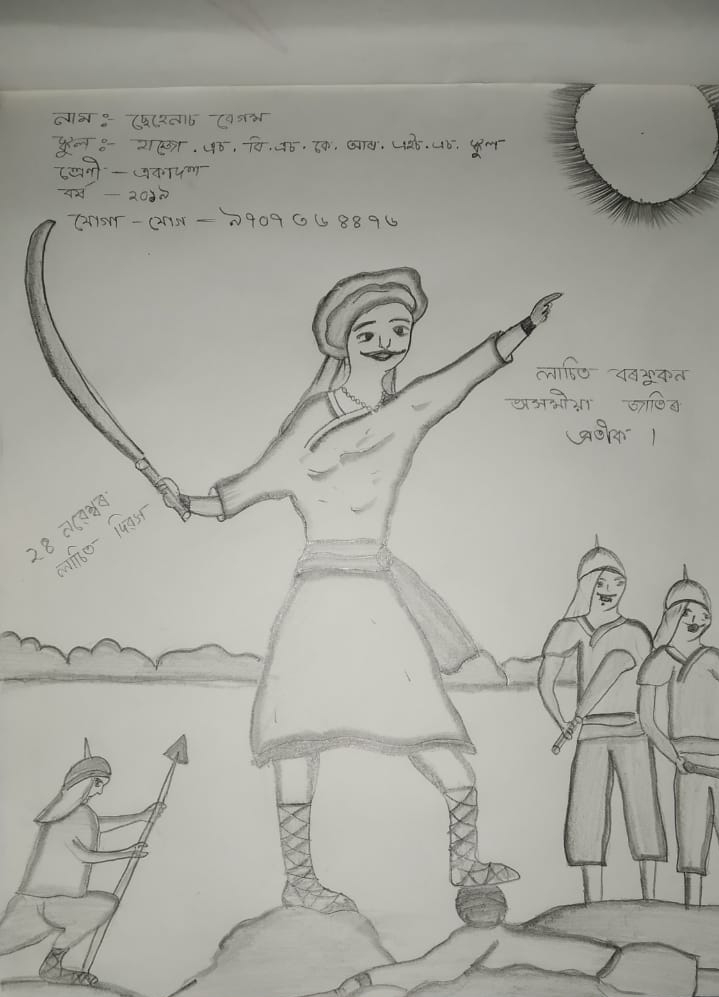 নাম :- ছেহেনাচ বেগম
স্কুল :- হাজো . এচ . বি . এচ . কে . আৰ . এইচ . এচ . স্কুল
শ্ৰেণী - একাদশ
বৰ্ষ - ২০১৯
যোগা - যোগ - ৯৭০৭৩৬৪৪৭৬
লাচিত বৰফুকন
অসমীয়া জাতিৰ
প্ৰতীক ।
২৪ নৱেম্বৰ
লাচিত দিৱস